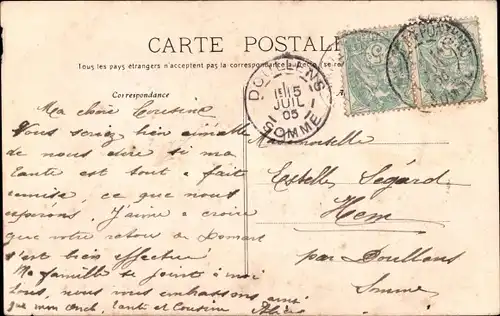 CARTE POSTALE
Tous les pays étrangers n'acceptent pas la correspondance au
Correspondance
DOULLENS
15
JUIL
05
SOMME
Ma chère Cousine
Vous serez bien aimable
de nous dire si ma
tante est tout à fait
remise, ce que nous
espérons. J'aime à croire
que votre retour de Domart
s'est bien effectué.
Ma famille se joint à moi
tous, nous vous embrassons ainsi
que mon Oncle, tante et Cousine
Mademoiselle
Estelle Ségard
Hem
par Doullens
Somme